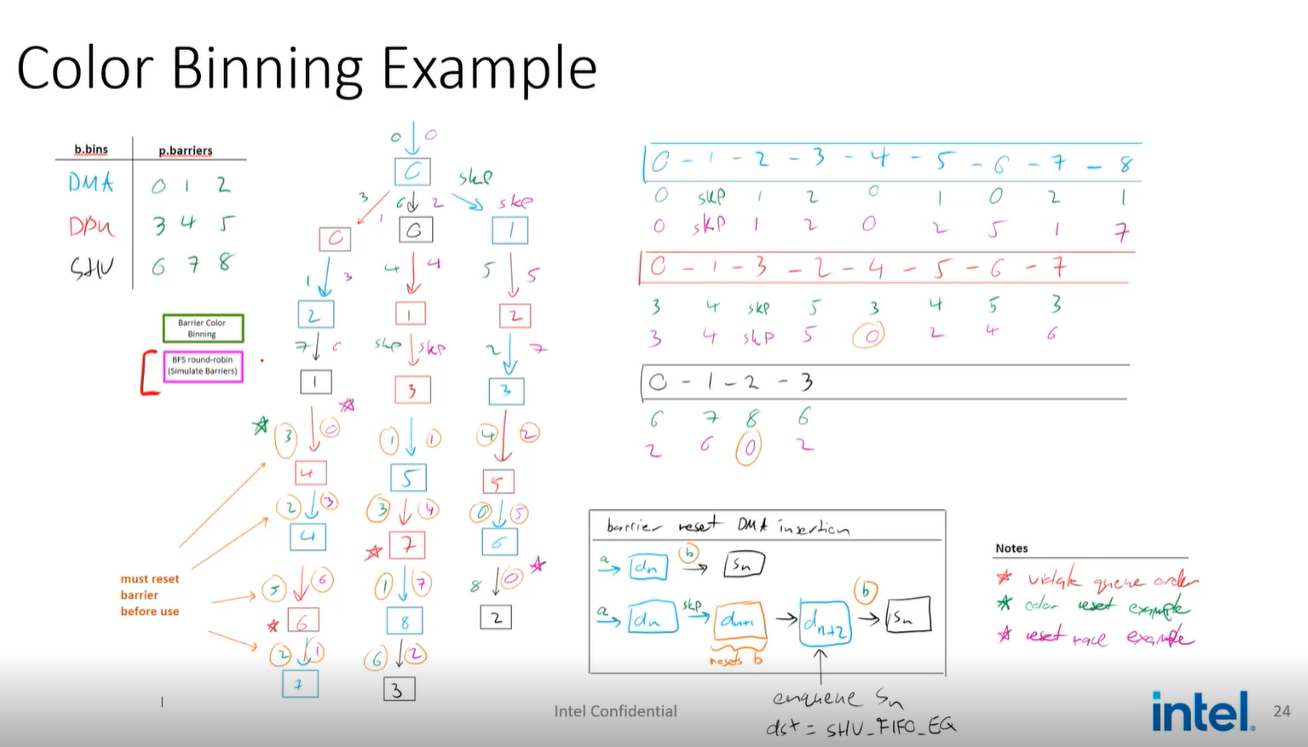 Color Binning Example
b.bins p.barriers
DMA 0 1 2
DPU 3 4 5
SHV 6 7 8
Barrier Color
Binning
BFS round-robin
(Simulate Barriers)
0 0
0
skp
3 1 6 2 skp
0 0 1
1 3 4 4 5 5
2 1 2
7 6 skp skp 2 7
1 3 3
3 0 1 1 4 2
4 5 5
2 3 3 4 0 5
4 7 6
5 6 1 7 8 0
6 8 2
2 1 6 2
7 3
must reset
barrier
before use
0 - 1 - 2 - 3 - 4 - 5 - 6 - 7 - 8
0 skp 1 2 0 1 0 2 1
0 skp 1 2 0 2 5 1 7
0 - 1 - 3 - 2 - 4 - 5 - 6 - 7
3 4 skp 5 3 4 5 3
3 4 skp 5 0 2 4 6
0 - 1 - 2 - 3
6 7 8 6
2 6 0 2
barrier reset DMA insertion
a dn b Sn
a dn skp dn+1 dn+2 b Sn
resets b
enqueue Sn
dst = SHV_FIFO_EQ
Notes
violate queue order
color reset example
reset race example
Intel Confidential
intel.
24